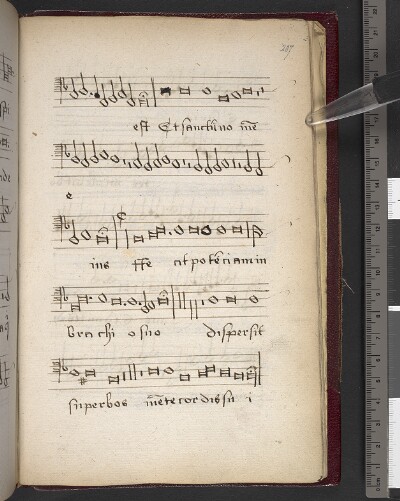 207
est Et sanctū no mē
e
ius ffe cit potēciam in
brachi o suo dispersit
superbos mēte cor dis su i